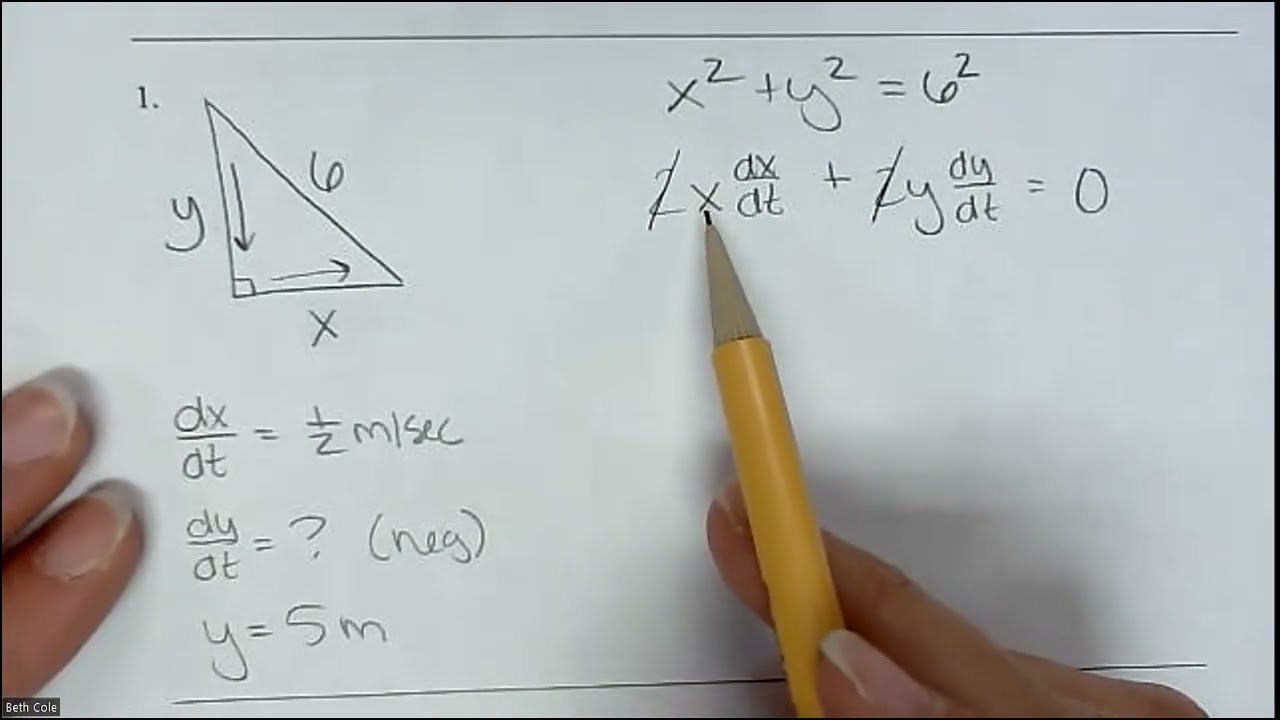 1.
y
6
x
x² + y² = 6²
2x dx/dt + 2y dy/dt = 0
dx/dt = 1/2 m/sec
dy/dt = ? (neg)
y = 5m
Beth Cole